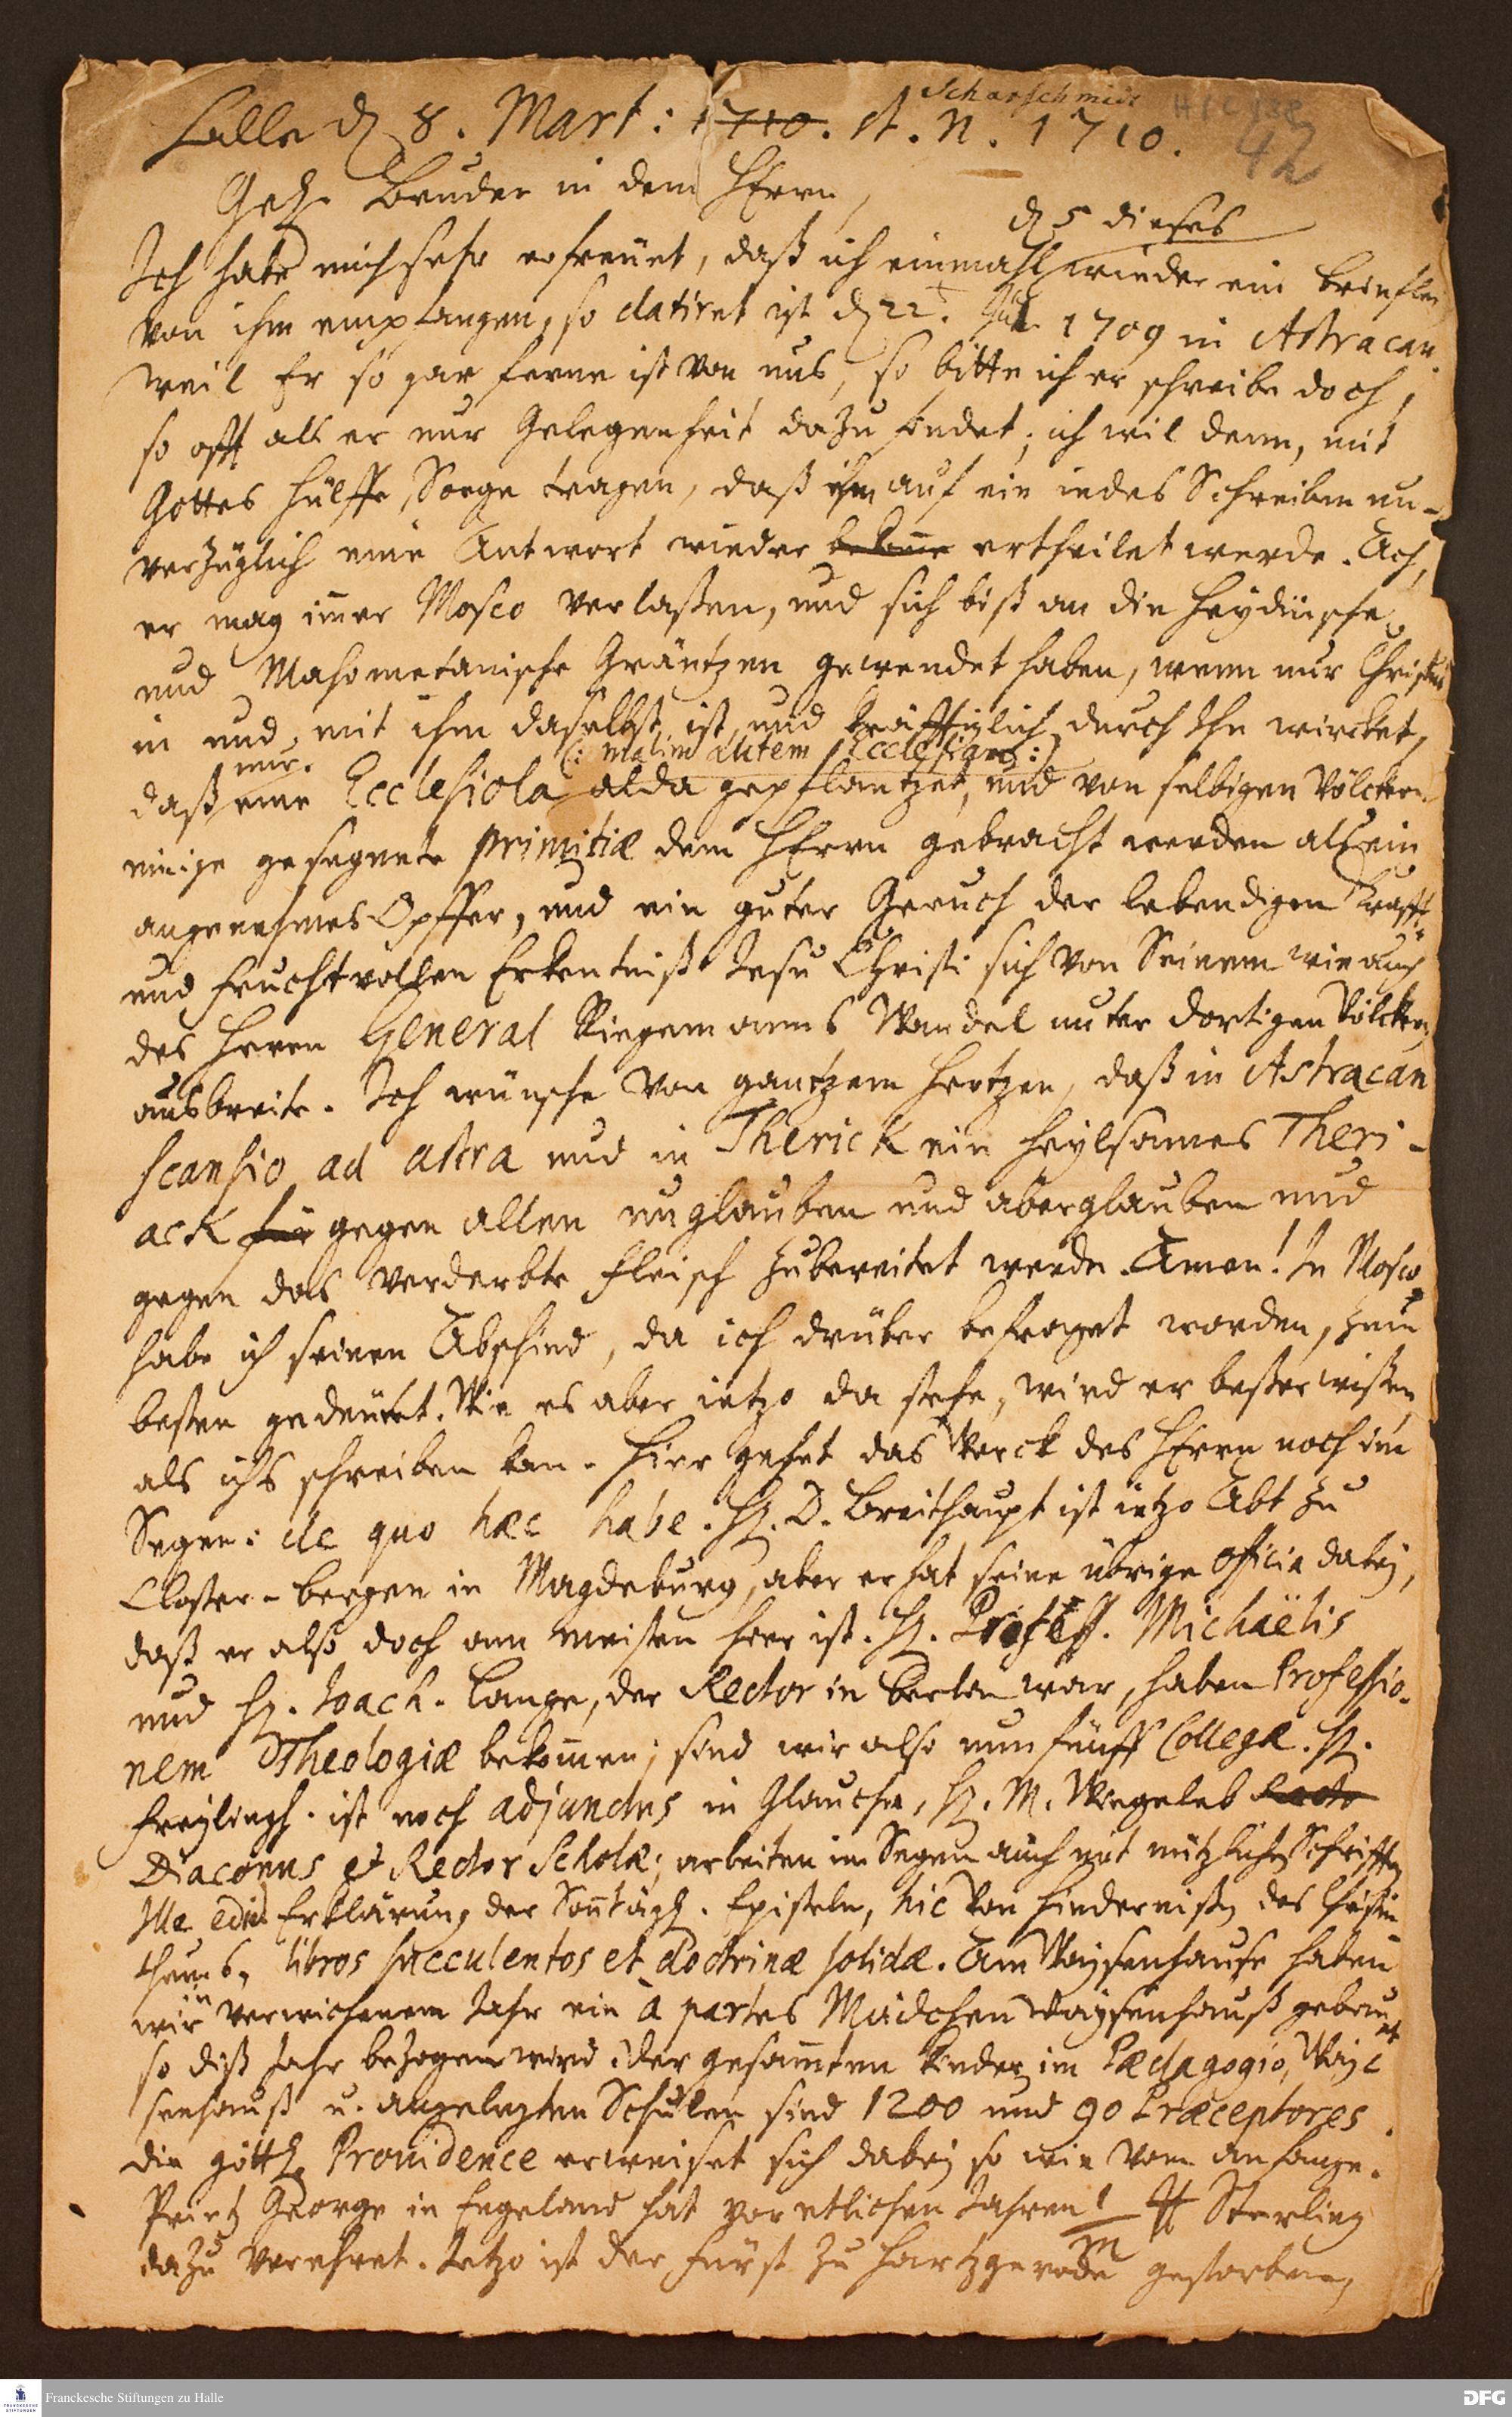 Scharschmidt
H I C 138
42
Halle d 8. Mart: 1710. st. n. 1710.
Gel. Bruder in dem HErrn,
d 5 dieses
Ich habe mich sehr erfreuet, daß ich einmahl wieder ein brieflein
von ihm empfangen, so datiret ist d 22. Jul. 1709 in Astracan.
weil Er so gar ferne ist von uns, so bitte ich er schreibe doch,
so offt als er nur Gelegenheit dazu findet; ich wil denn, mit
Gottes Hülffe, Sorge tragen, daß ihm auf ein iedes Schreiben un-
verzüglich eine Antwort wieder bekome ertheilet werde. Ach,
er mag imer Mosco verlaßen, und sich biß an die Heydnische
und Mahometanische Gräntzen gewendet haben, wenn nur Christus
in und mit ihm daselbst ist, und kräfftiglich durch Ihn wircket,
nur (: malim autem Ecclesiam :)
daß eine Ecclesiola alda gepflantzet, und von selbigen Völckern
einige gesegnete primitiæ dem HErrn gebracht werden als ein
angenehmes Opffer, und ein guter Geruch der lebendigen krafft-
und fruchtvollen Erkentniß Jesu Christi sich von Seinem wie auch
des Herrn General Riegemanns Wandel unter dortigen Völckern
ausbreite. Ich wünsche von gantzem Hertzen, daß in Astracan
scansio ad astra und in Therick ein heylsames Theri-
ack für gegen allen unglauben und aberglauben und
gegen das verderbte Fleisch zubereitet werde. Amen! In Mosco
habe ich seinen Abschied, da ich drüber befraget worden, zum
besten gedeutet. Wie es aber ietzo da stehe, wird er beßer wißen,
als ichs schreiben kan. Hier gehet das Werck des HErrn noch im
Segen: de quo hæc habe. H. D. Breithaupt ist ietzo Abt zu
Closter-bergen in Magdeburg, aber er hat seine übrige Officia dabey,
daß er also doch am meisten hier ist. H. Profess. Michaëlis
und H. Joach. Lange, der Rector in Berlin war, haben Professio-
nem Theologiæ bekomen; sind wir also nun fünff Collegæ. H.
Freylingh. ist noch adjunctus in Glaucha, H. M. Wiegeleb Recto
Diaconus et Rector Scholæ; arbeiten im Segen auch mit nützlichen Schrifften
Ille edid. Erklärung der Sontägl. Episteln, hic von Hinderniß des Christen
thums, libros succulentos et doctrinæ solidæ. Am Waysenhause haben
wir in verwichenem Jahr ein à partes Mädchen Waysenhauß gebauet
so diß Jahr bezogen wird. Der gesamten Kinder im Pædagogio, Way-
senhauß u. angelegten Schulen sind 1200 und 90 Præceptores.
die göttl. Prouidence erweiset sich dabey so wie vom anfange.
Printz George in Engeland hat vor etlichen Jahren 1 m ℔ Sterling
dazu verehret. Jetzo ist der Fürst zu Hartzgerode gestorben,
Franckesche Stiftungen zu Halle
FRANCKESCHE STIFTUNGEN
DFG